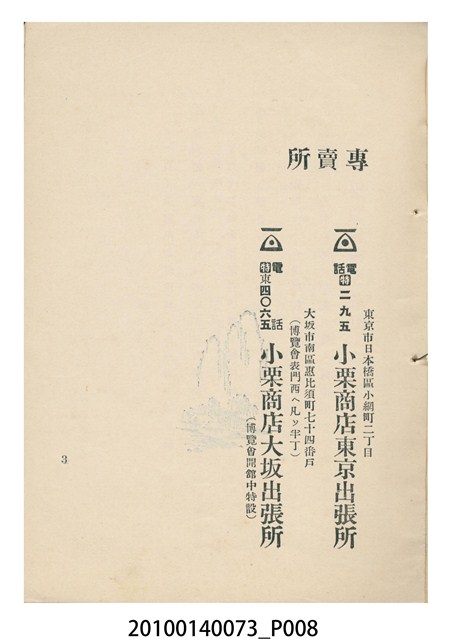 專賣所
東京市日本橋區小網町二丁目
電話特二九五 小栗商店東京出張所
大坂市南區惠比須町七十四番戶
(博覽會表門西ヘ凡ッ半丁)
電話特東四〇六五 小栗商店大坂出張所
(博覽會開館中特設)
3
20100140073_P008